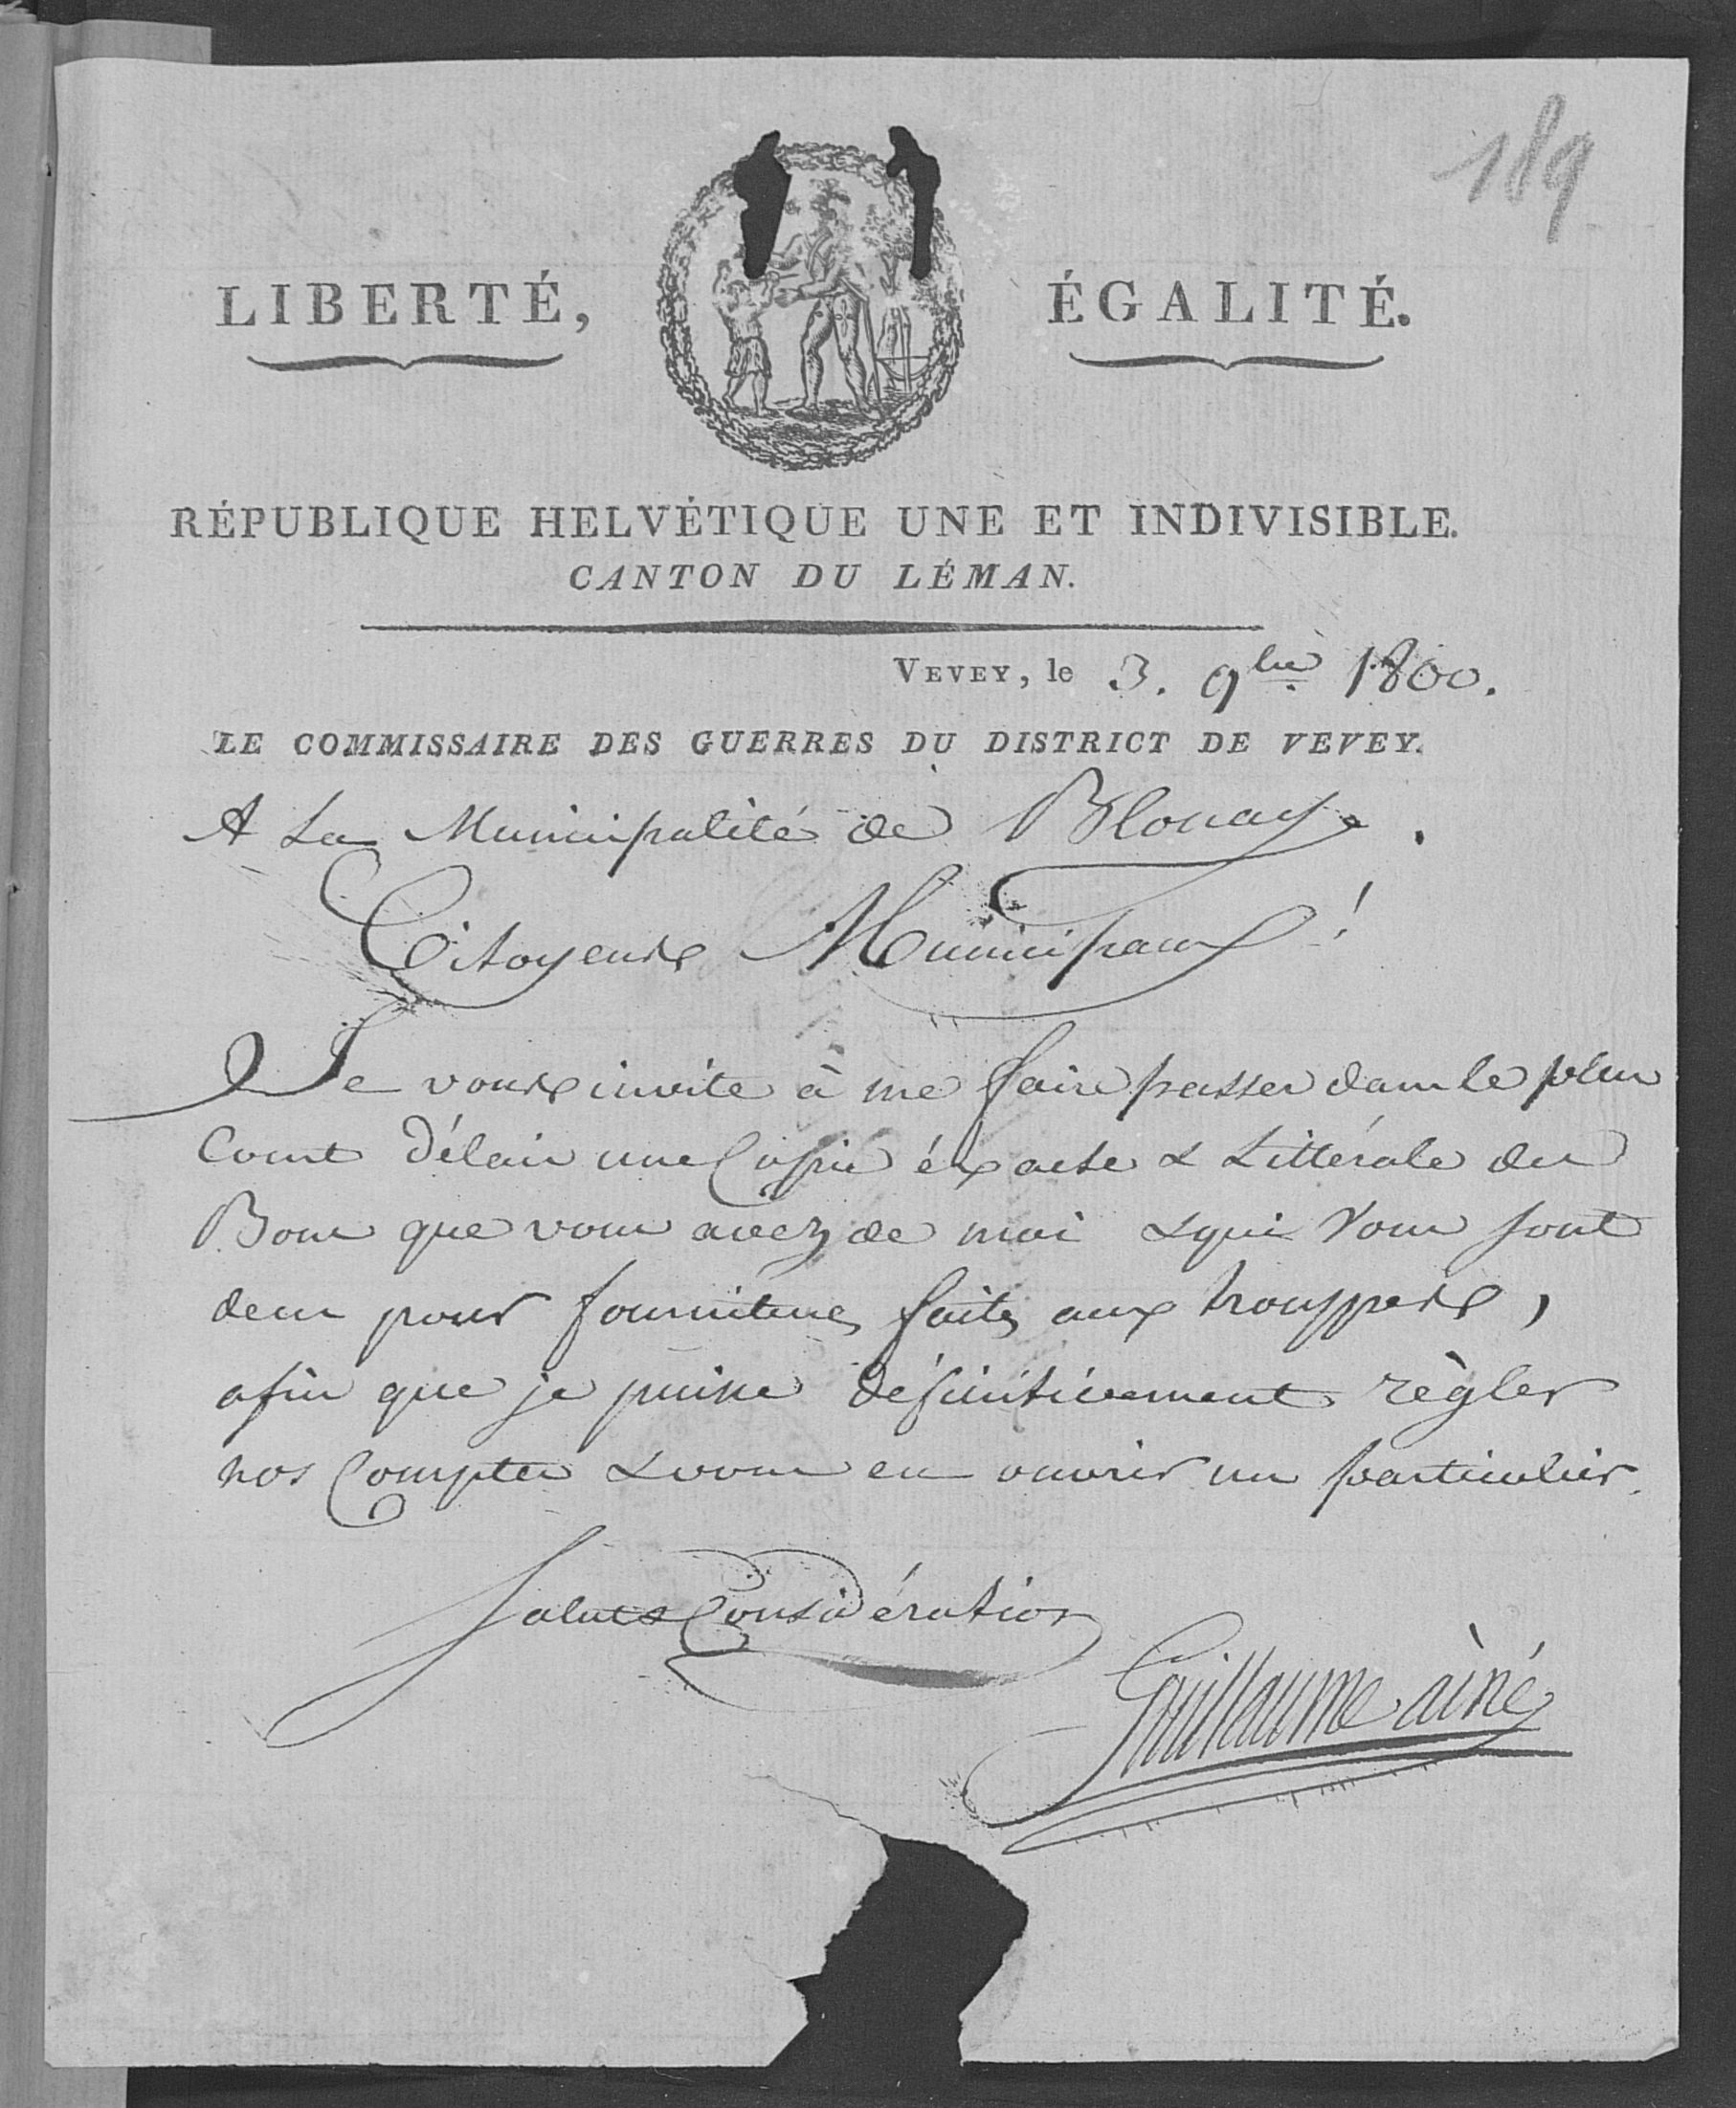 189
LIBERTÉ, ÉGALITÉ.
RÉPUBLIQUE HELVÉTIQUE UNE ET INDIVISIBLE.
CANTON DU LÉMAN.
VEVEY, le 3. 9bre 1800.
LE COMMISSAIRE DES GUERRES DU DISTRICT DE VEVEY.
A La Municipalité de Blonay.
Citoyens Municipaux!
Je vous invite à me faire passer dans le plus
Court Délai une Copie éxacte & Littérale des
Bons que vous avez de moi & qui Vous sont
deus pour fournitures faites aux trouppes,
afin que je puisse définitivement règler
nos Comptes & vous en ouvrir un particulier.
Salut & Considération
Guillaume ainé